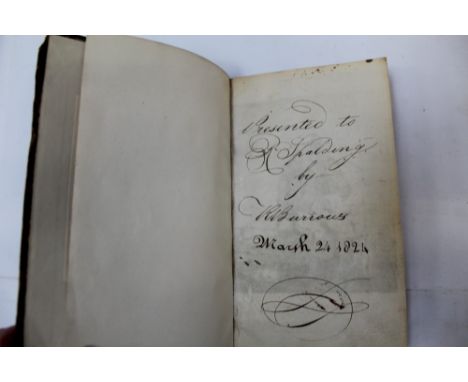 Presented to
R Spalding
by
R Burrows
March 24 1824